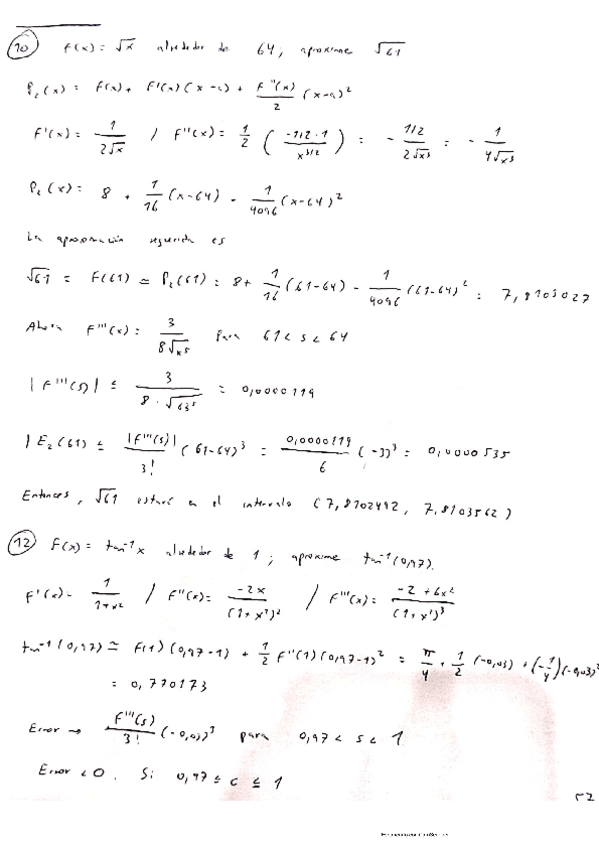 10 F(x) = √x alrededor de 64; aproxime √61
P₂(x) = F(x) + F'(x)(x-a) + F''(x)/2 (x-a)²
F'(x) = 1/(2√x) / F''(x) = 1/2 ( (-1/2 · 1)/x^(3/2) ) = - (1/2)/(2√x³) = - 1/(4√x³)
P₂(x) = 8 + 1/16 (x-64) - 1/4096 (x-64)²
La aproximación requerida es
√61 = F(61) ≃ P₂(61) = 8 + 1/16 (61-64) - 1/4096 (61-64)² = 7,8103027
Ahora F'''(x) = 3/(8√x⁵) para 61 < s < 64
|F'''(s)| ≤ 3/(8·√63⁵) = 0,0000119
|E₂(61) ≤ |F'''(s)|/3! (61-64)³ = 0,0000119/6 (-3)³ = 0,0000535
Entonces, √61 estará en el intervalo (7,8102492, 7,8103562)
12 F(x) = tan⁻¹x alrededor de 1; aproxime tan⁻¹(0,97).
F'(x) = 1/(1+x²) / F''(x) = -2x/(1+x²)² / F'''(x) = (-2+6x²)/(1+x²)³
tan⁻¹(0,97) ≃ F(1)(0,97-1) + 1/2 F''(1)(0,97-1)² = π/4 + 1/2 (-0,03) + (-1/4)(-0,03)²
= 0,770173
Error → F'''(s)/3! (-0,03)³ para 0,97 < s < 1
Error < 0. Si 0,97 ≤ c ≤ 1